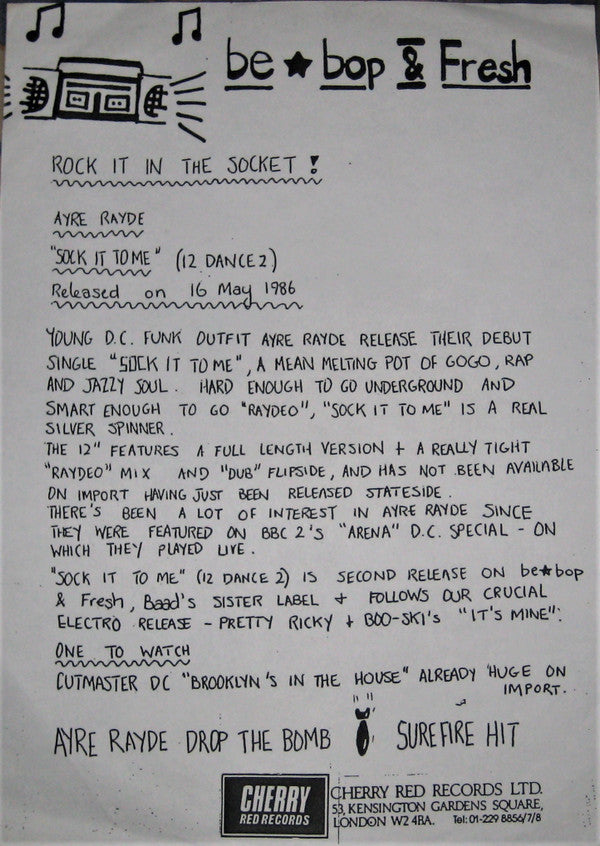 be★bop & Fresh
ROCK IT IN THE SOCKET !
AYRE RAYDE
"SOCK IT TO ME" (12 DANCE 2)
Released on 16 May 1986
YOUNG D.C. FUNK OUTFIT AYRE RAYDE RELEASE THEIR DEBUT
SINGLE "SOCK IT TO ME", A MEAN MELTING POT OF GOGO, RAP
AND JAZZY SOUL. HARD ENOUGH TO GO UNDERGROUND AND
SMART ENOUGH TO GO "RAYDEO", "SOCK IT TO ME" IS A REAL
SILVER SPINNER.
THE 12" FEATURES A FULL LENGTH VERSION + A REALLY TIGHT
"RAYDEO" MIX AND "DUB" FLIPSIDE, AND HAS NOT BEEN AVAILABLE
ON IMPORT HAVING JUST BEEN RELEASED STATESIDE.
THERE'S BEEN A LOT OF INTEREST IN AYRE RAYDE SINCE
THEY WERE FEATURED ON BBC 2'S "ARENA" D.C. SPECIAL - ON
WHICH THEY PLAYED LIVE.
"SOCK IT TO ME" (12 DANCE 2) IS SECOND RELEASE ON be★bop
& Fresh, Baad's SISTER LABEL + FOLLOWS OUR CRUCIAL
ELECTRO RELEASE - PRETTY RICKY + BOO-SKI'S "IT'S MINE".
ONE TO WATCH
CUTMASTER DC "BROOKLYN'S IN THE HOUSE" ALREADY HUGE ON
IMPORT.
AYRE RAYDE DROP THE BOMB SUREFIRE HIT
CHERRY
RED RECORDS
CHERRY RED RECORDS LTD.
53, KENSINGTON GARDENS SQUARE,
LONDON W2 4BA. Tel: 01-229 8856/7/8